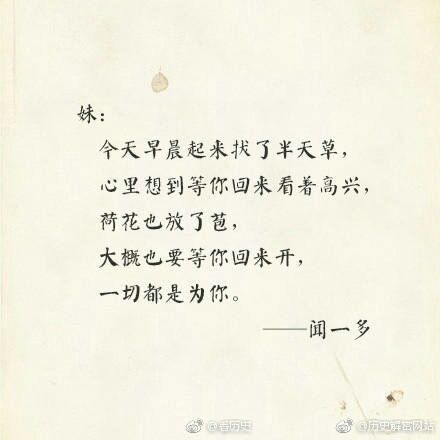 妹：
今天早晨起来拔了半天草，
心里想到等你回来看着高兴，
荷花也放了苞，
大概也要等你回来开，
一切都是为你。
——闻一多
@看历史
@历史解密网站